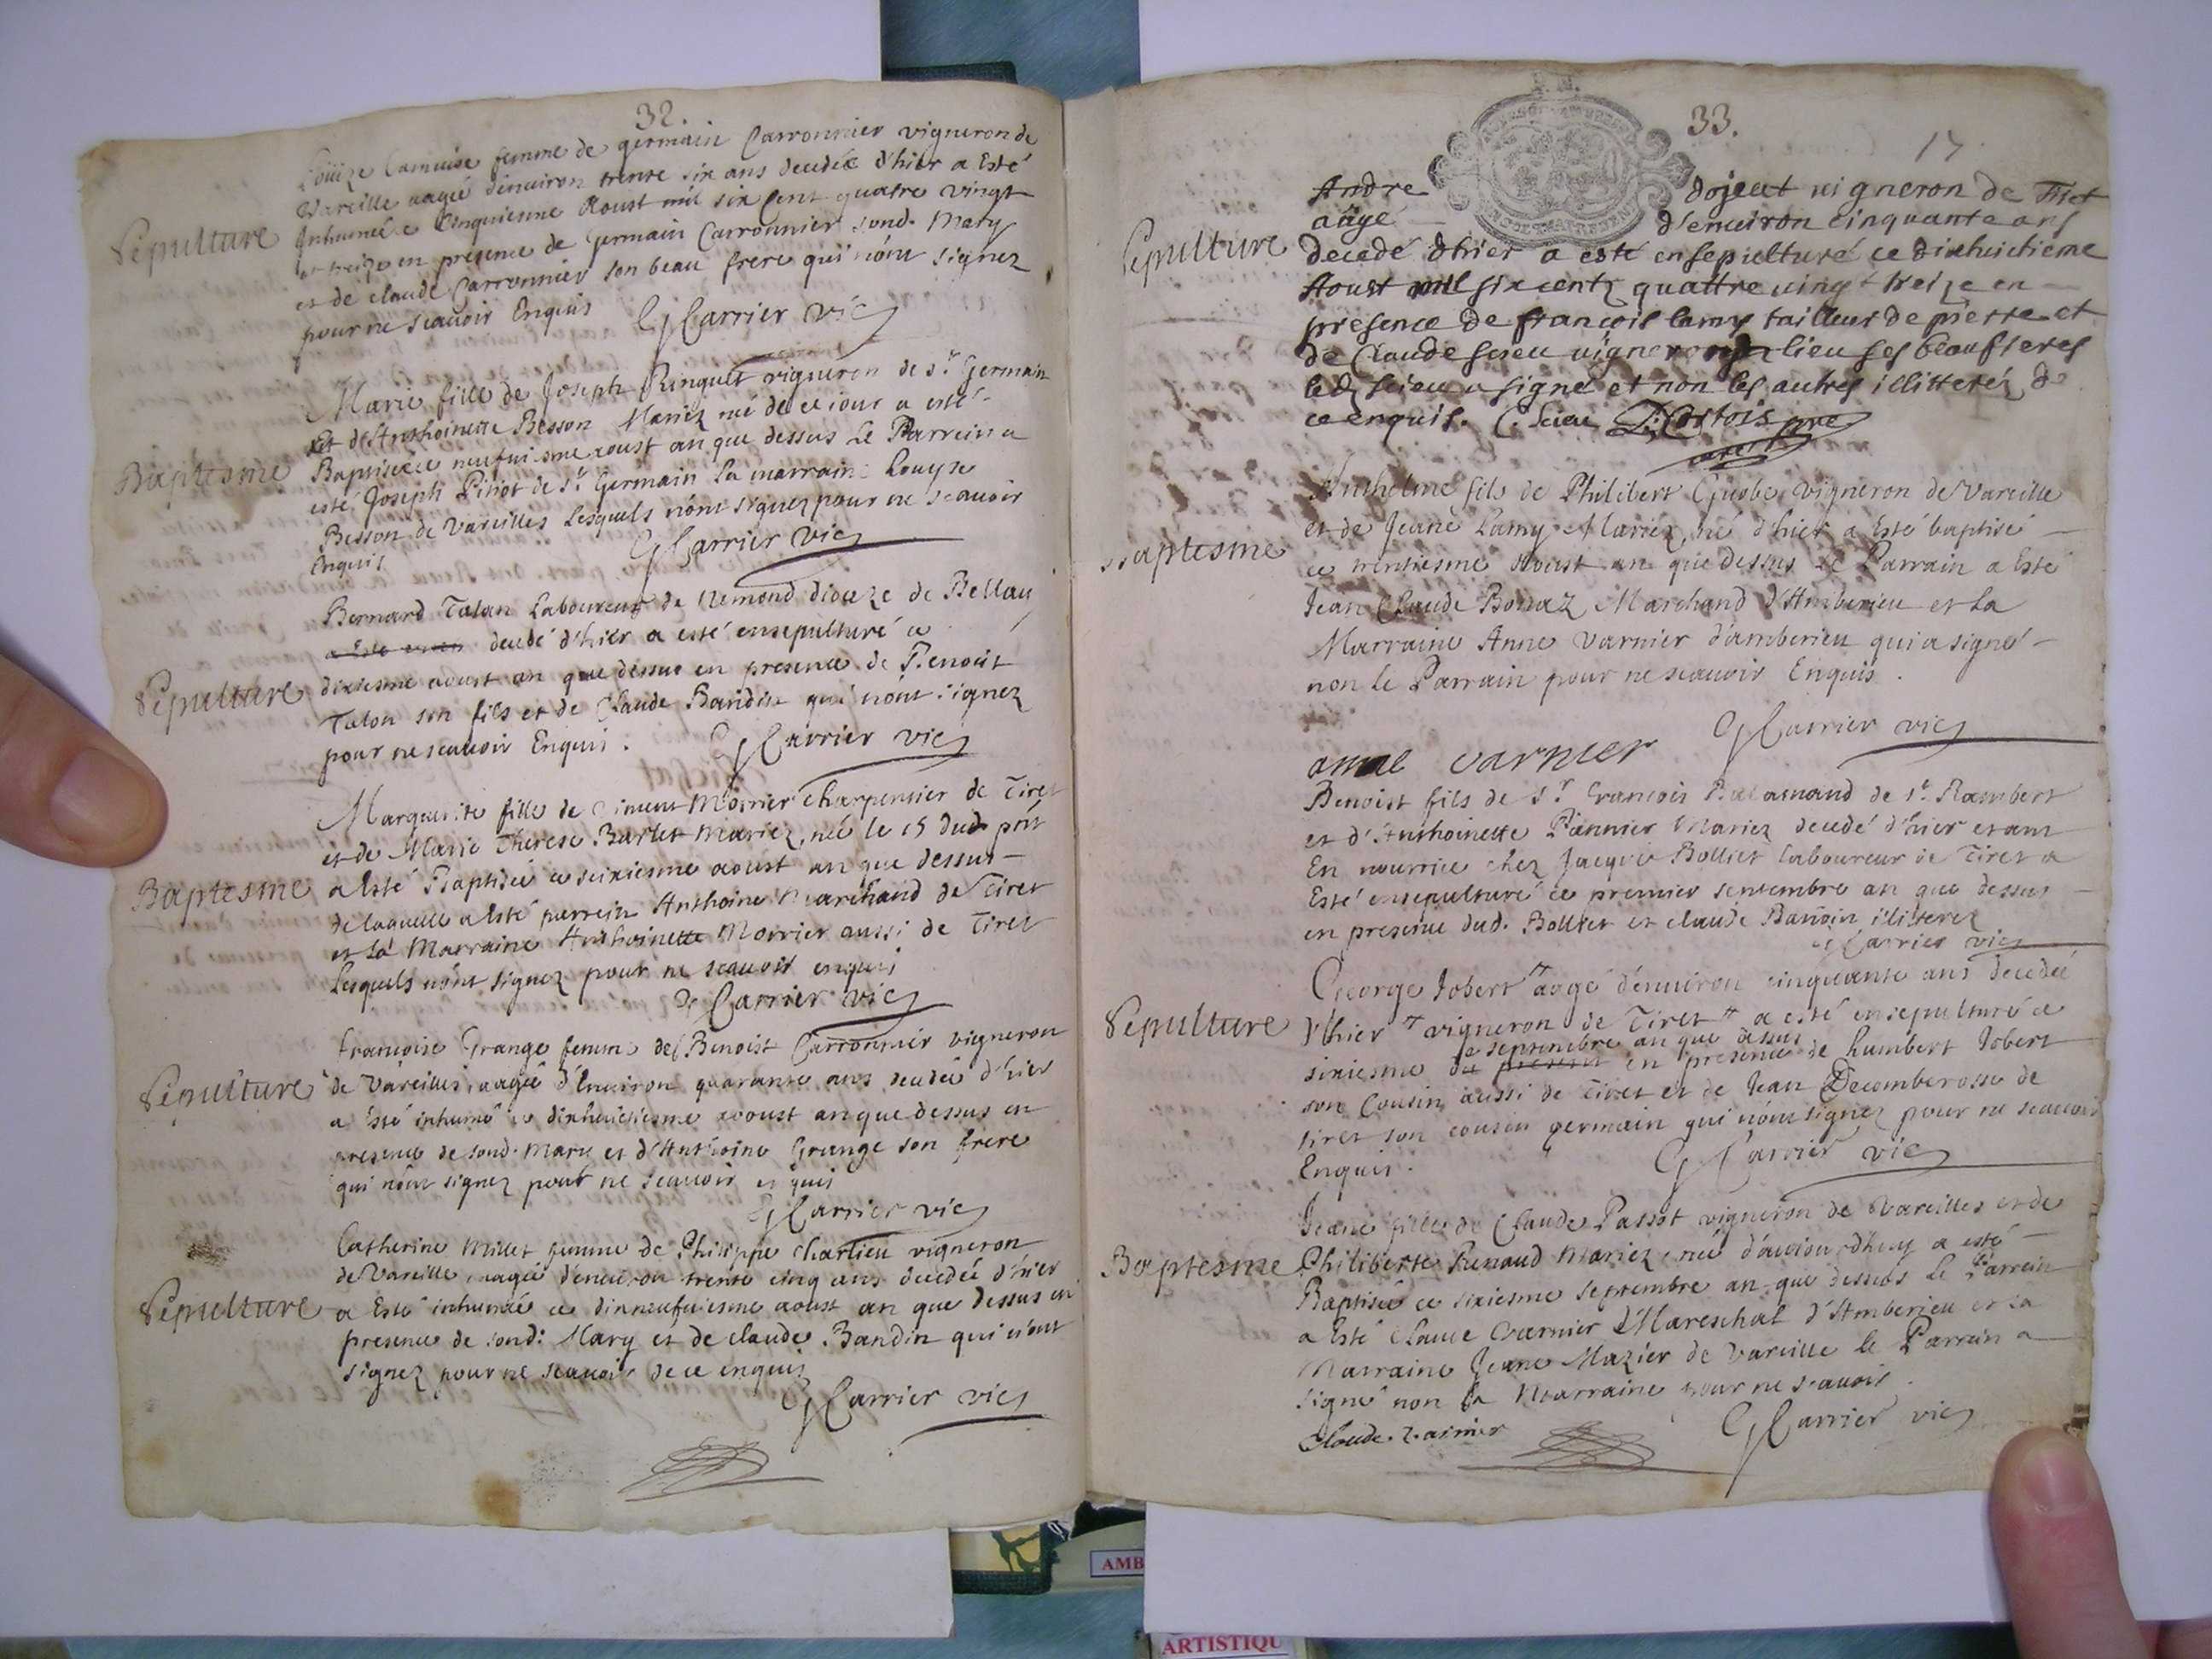 32.
Louize Camuise femme de germain Carronnier vigneron de
Vareille aagée d'enuiron trente six ans decedée d'hier a Esté
Sepulture
Inhumée ce Cinquiesme Aoust mil six Cent quatre vingt
et treize en presence de germain Carronnier sond. Mary
et de claude Carronnier son beau frere qui n'ont signez
pour ne scauoir Enquis GCarrier vic
Marie fille de Joseph Ringuet vigneron de st. Germain
Et de Anthoinette Besson Mariez née de ce iour a esté
Baptesme
Baptisée ce neufuiesme aoust an que dessus Le Parrein a
esté Joseph Pitiot de st. Germain La marraine Louyse
Besson de Vareilles Lesquels n'ont signez pour ne scauoir
Enquis GCarrier vic
Bernard Talon Laboureur de Nemond dioceze de Bellay
decedé d'hier a esté ensepulturé ce
Sepulture
dixiesme aoust an que dessus en presence de Benoist
Talon son fils et de Claude Bandin qui n'ont signez
pour ne scauoir Enquis. GCarrier vic
Marguerite fille de Morrier charpentier de Tiret
et de Marie Therese Barlet Mariez, née le 15 dud. pnt
Baptesme
a Esté Baptisée ce seixiesme aoust an que dessus
de laquelle a Esté parrein Anthoine Marchand de Tiret
et La Marraine Anthoinette Morrier aussi de Tiret
Lesquels n'ont signez pour ne scauoir enquis
GCarrier vic
francoise Grange femme de Benoist Carronnier vigneron
Sepulture
de Vareilles, aagée d'Enuiron quarante ans decedée d'hier
a Esté inhumé ce dixhuictiesme aoust an que dessus en
presence de sond. Mary et d'Anthoine Grange son frere
qui n'ont signez pour ne scauoir enquis
GCarrier vic
Catherine Millet femme de Philippe charlieu vigneron
de Vareille, aagée d'enuiron trente cinq ans decedée d'hier
Sepulture
a Esté inhumée ce dixneufuiesme aoust an que dessus en
presence de sond. Mary et de claude Bandin qui n'ont
signez pour ne scauoir de ce enquis
GCarrier vic
33.
17
Andre dojeat uigneron de Tiret
aâgé d'enuiron cinquante ans
Sepulture
decedé d'hier a esté ensepulturé ce dixhuictieme
Aoust mil six centz quattre uingt treize en
presence de francois lamy tailleur de pierre et
de Claude scieu uigneron lieu ses beaufreres
led. scieu a signé et non les autres illitterez de
ce enquis. C. Scieu
Anthelme fils de Philibert Guobe vigneron de Vareille
et de Jeane Lamy Mariez, né d'hier a Esté baptisé
Baptesme
ce trentiesme Aoust an que dessus Le Parrain a Esté
Jean Claude Bouaz Marchand d'Amberieu et La
Marraine Anne Varnier d'amberieu qui a signé
non le Parrain pour ne scauoir Enquis.
GCarrier vic
anne varnier
Benoist fils de sr. francois de st. Rambert
et d'Anthoinette Pannier Mariez decedé d'hier etant
En nourrice chez Jacque Bolliet laboureur de Tiret a
Esté ensepulturé ce premier septembre an que dessus
en presence dud. Bolliet et claude Bandin illiterez
GCarrier vic
George Jobert aagé d'enuiron cinquante ans decedé
Sepulture
d'hier vigneron de Tiret a esté ensepulturé ce
septembre an que dessus
sixiesme du present en presence de humbert Jobert
son Cousin aussi de Tiret et de Jean Decomberousse de
tiret son cousin germain qui n'ont signez pour ne scauoir
Enquis. GCarrier vic
Jeane fille de Claude Passot vigneron de Vareilles et de
Baptesme
Philiberte Renaud Mariez, née d'auiourdhuy a esté
Baptisée ce sixiesme septembre an que dessus Le Parrein
a Esté Claude Varnier Mareschal d'Amberieu et La
Marraine Jeane Mazier de Vareille le Parrein a
signé non la Marraine pour ne scauoir.
GCarrier vic
AMB
ARTISTIQU